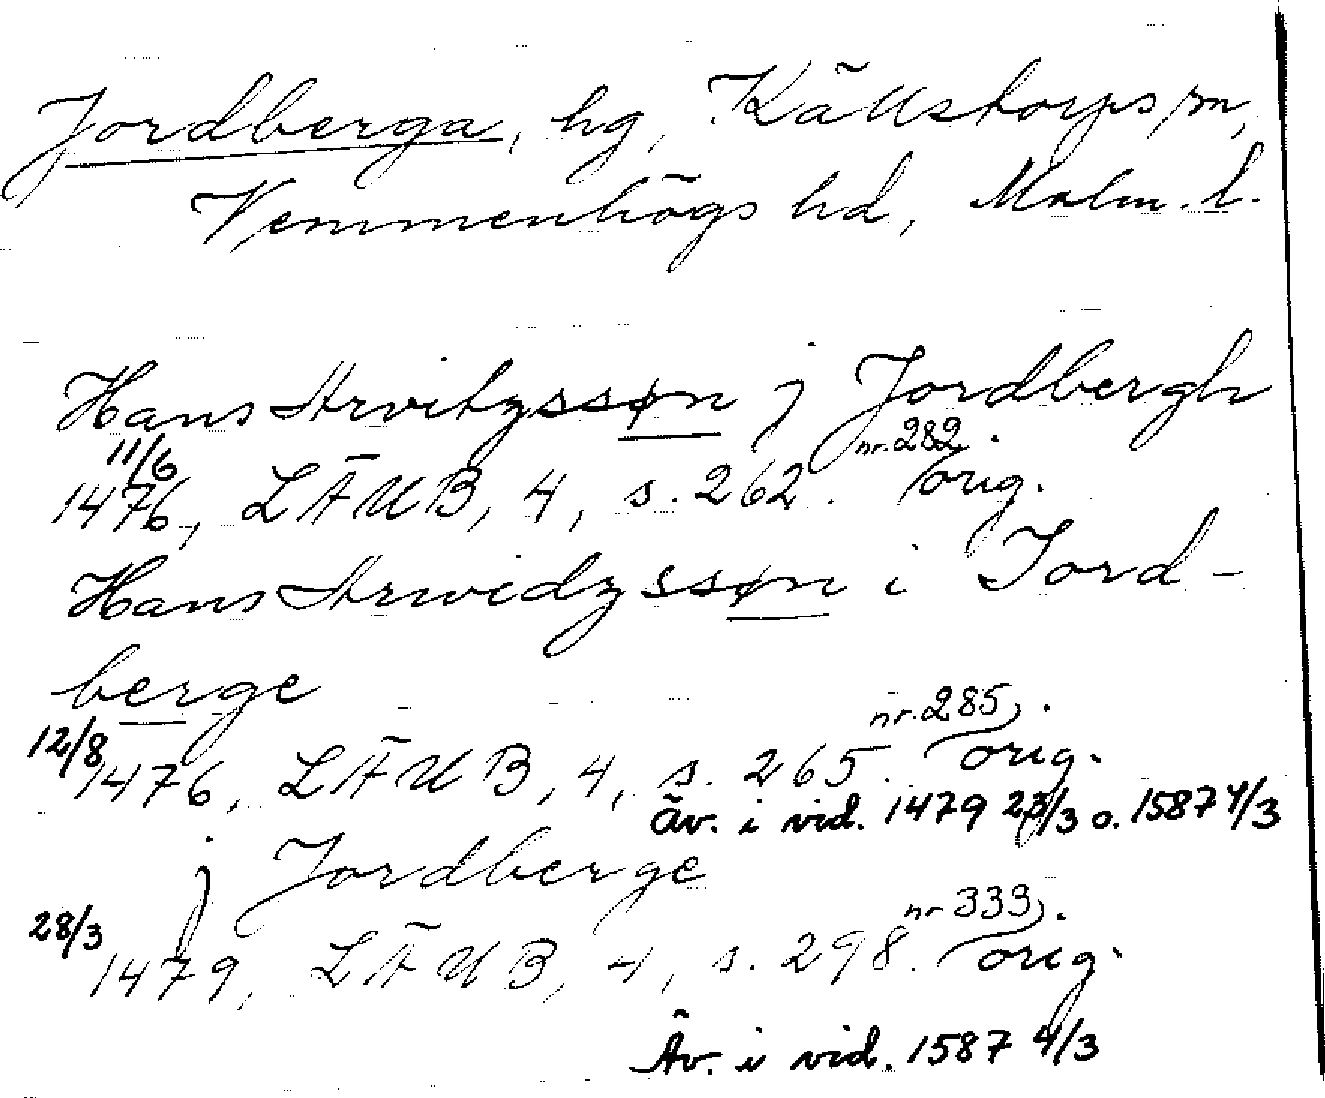 Jordberga, hg, Källstorps sn,
Vemmenhögs hd, Malm. l.
Hans Arvitzssøn j Jordbergh
11/6 1476, LÄUB, 4, s. 262. nr. 282. orig.
Hans Arwidzssøn i Jord-
berge
12/8 1476, LÄUB, 4, s. 265. nr. 285. orig.
Äv. i vid. 1479 23/3 o. 1587 4/3
j Jordberge
28/3 1479, LÄUB, 4, s. 298. nr 333. orig.
Äv. i vid. 1587 4/3